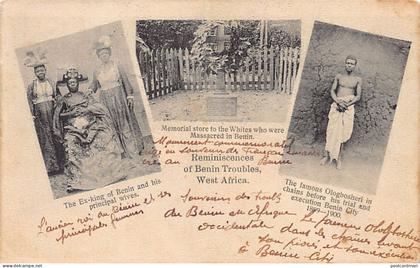 Memorial store to the Whites who were
Massacred in Benin.
Monument commemoratif
en souvenir de Français
Reminiscences
of Benin Troubles,
West Africa.
The Ex-king of Benin and his
principal wives.
The famous Ologbosheri in
chains before his trial and
execution Benin City
1899-1900.
L'ancien roi du Benin et ses
principales femmes
Souvenirs des troubles
du Benin en Afrique
occidentale
Le fameux Ologbosheri
dans les chaines avant
son procès et son exécution
à Benin City
www.delcampe.net